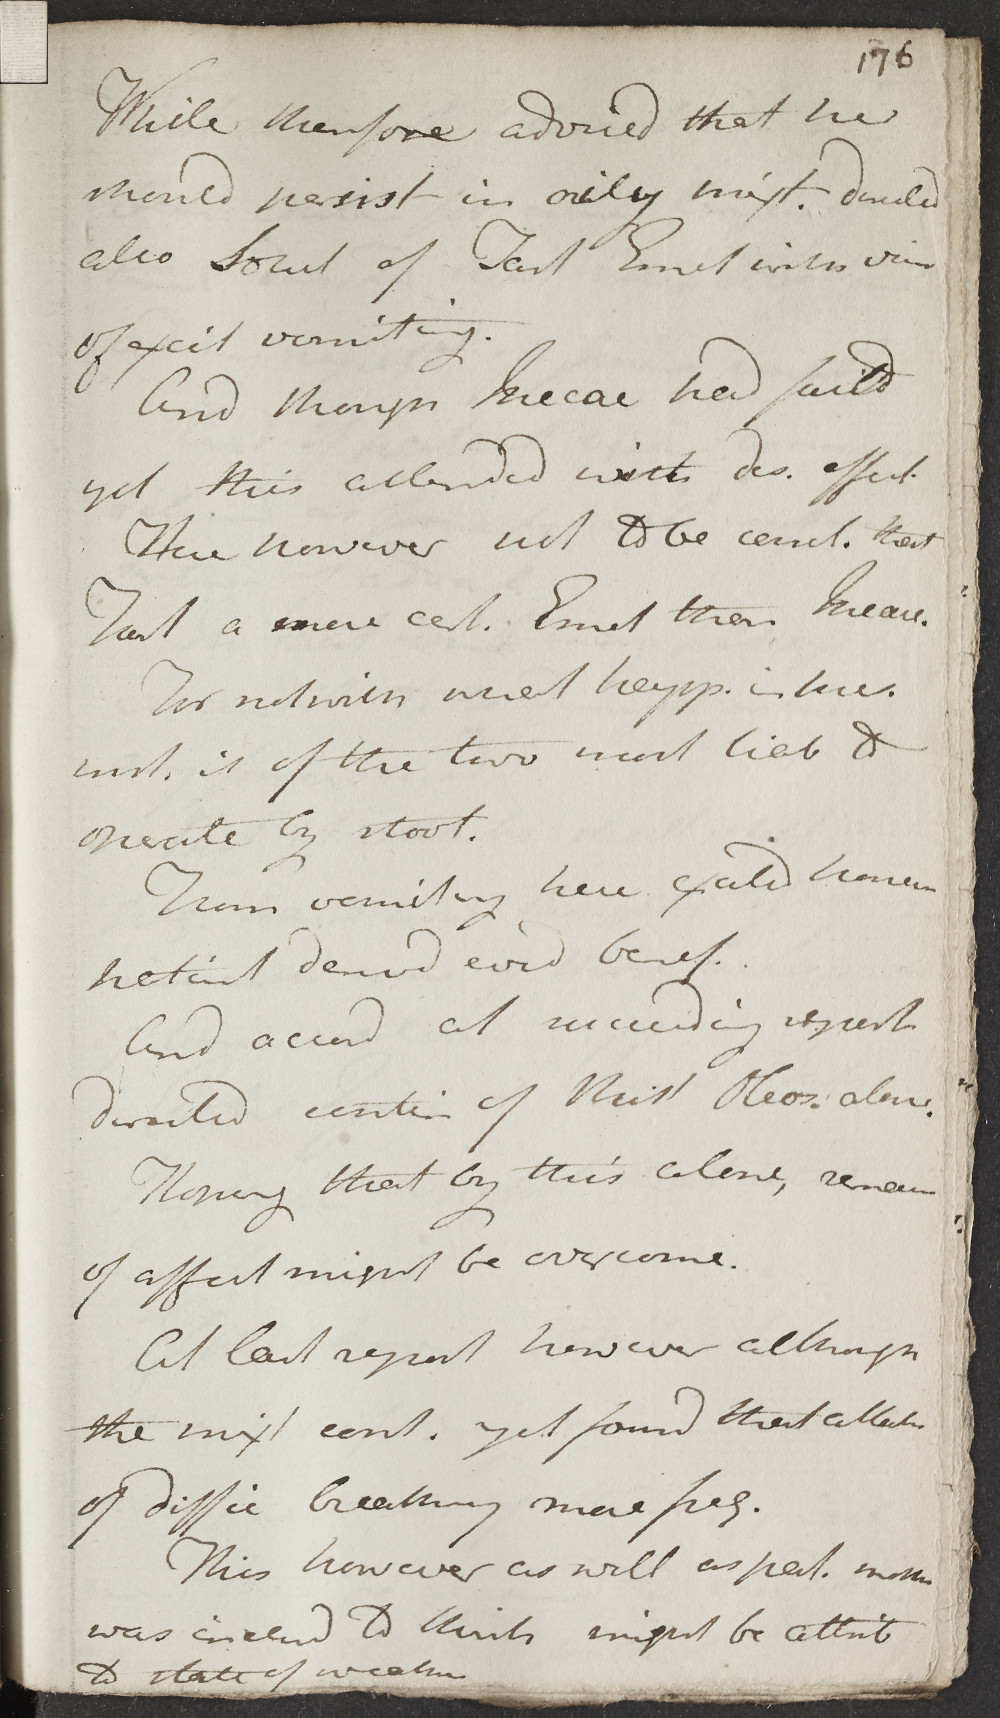 176
While therefore advised that he
should persist in oily mixt. directed
also Solut of Tart Emet with view
of excit vomiting.
And though Ipecac had faild
yet this attended with des. effect.
Here however not to be concl. that
Tart a more cert. Emet than Ipecac.
For notwith what happ. in this
inst. it of the two most liab to
operate by stool.
From vomiting here excited however
patient derived evid benef.
And accord at succeeding report
directed contin of Mist Oleos. alone.
Hoping that by this alone, remain
of affect might be overcome.
At last report however although
the mixt cont. yet found that attacks
of diffic breathing more freq.
This however as well as
was inclind to think might be attrib
to state of weakn